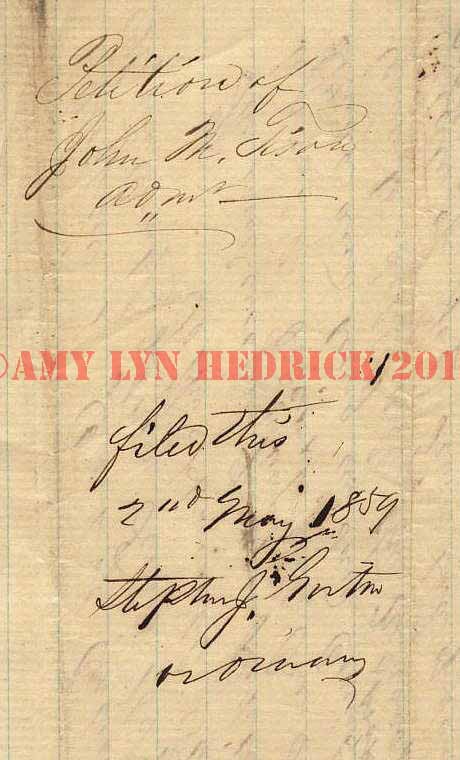 Petition of
John M. Tison
admr
©AMY LYN HEDRICK 201
filed this
2nd May 1859
Stephen J. Gorton
ordinary